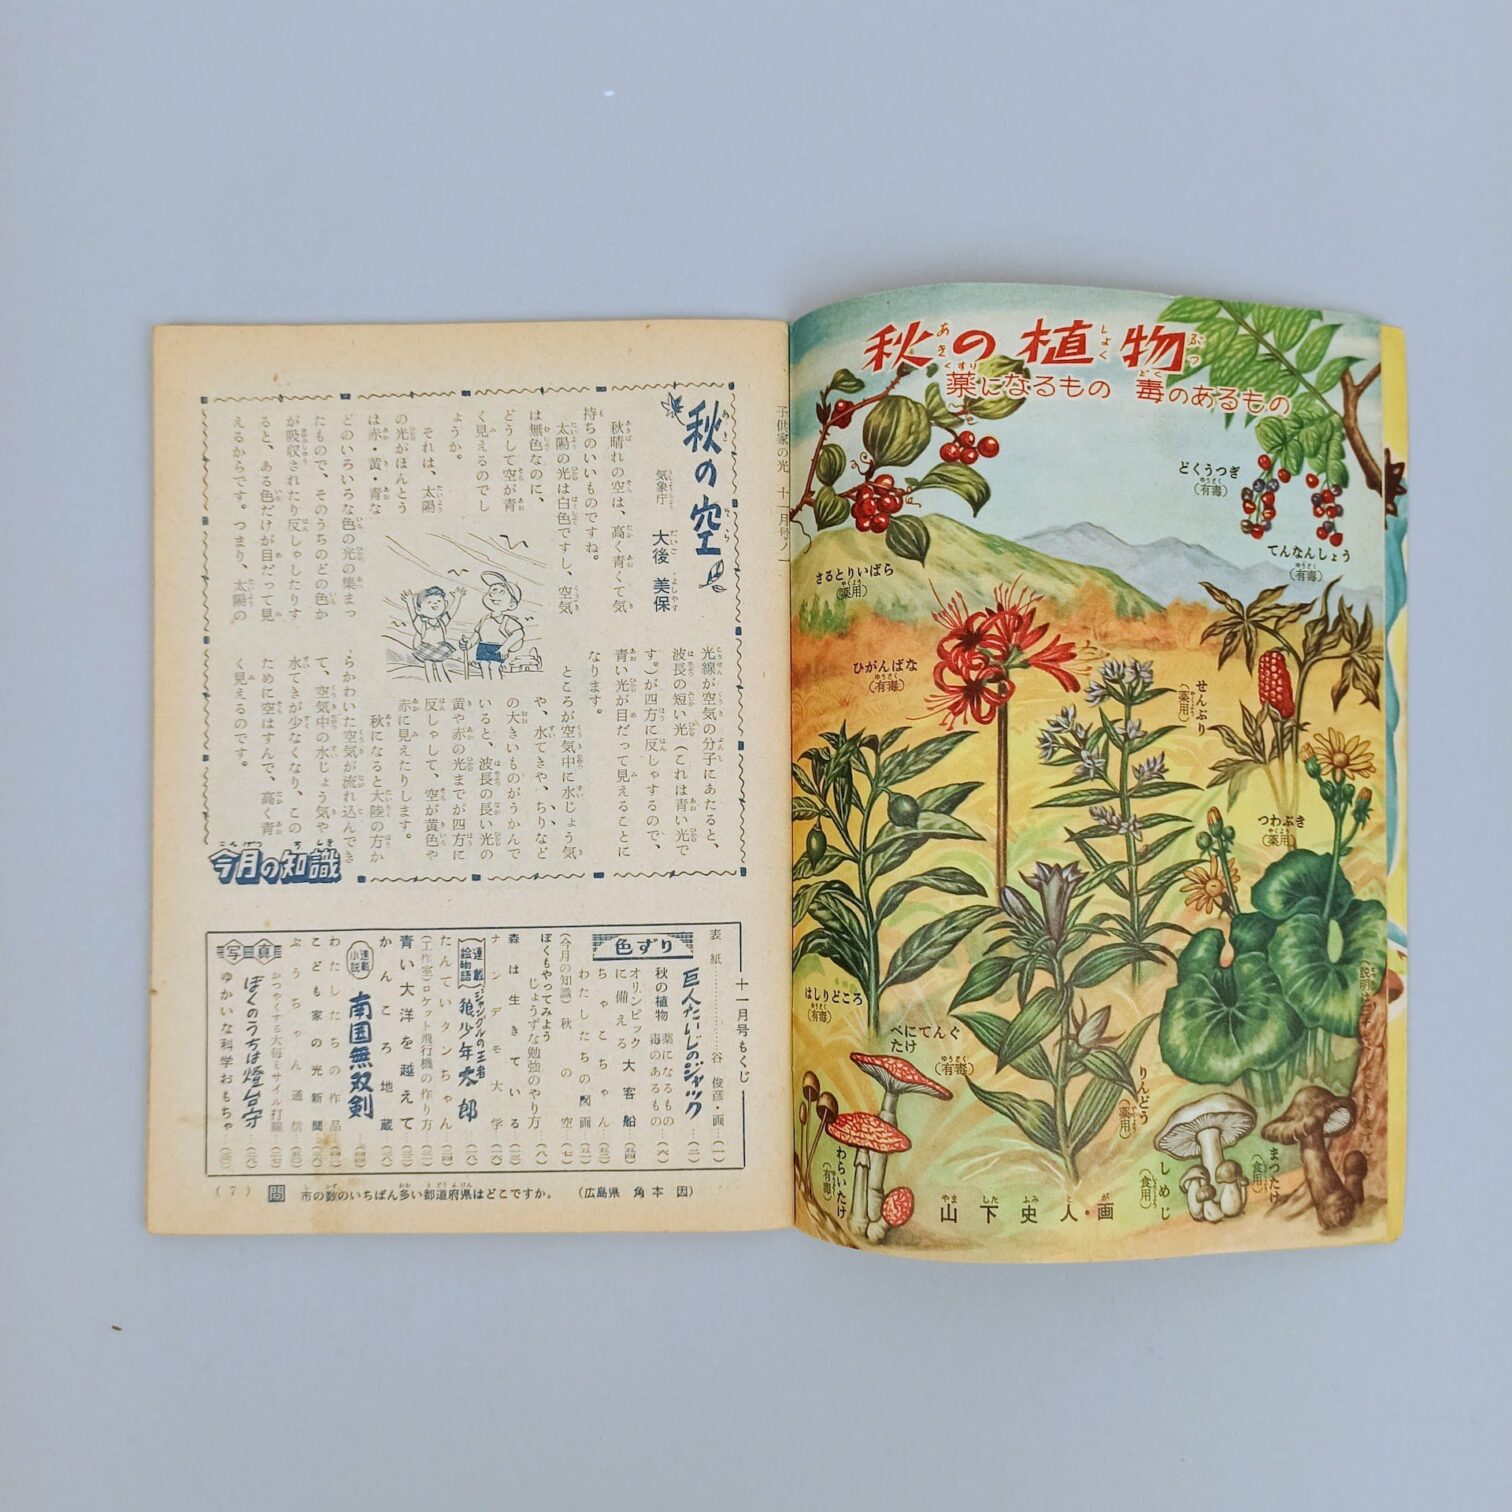 秋の植物
薬になるもの 毒のあるもの
どくうつぎ
(有毒)
てんなんしょう
(有毒)
さるとりいばら
(薬用)
ひがんばな
(有毒)
せんぶり
(薬用)
つわぶき
(薬用)
はしりどころ
(有毒)
べにてんぐ
たけ
(有毒)
りんどう
(薬用)
わらいたけ
(有毒)
しめじ
(食用)
まつたけ
(食用)
山下史人・画
子供家の光 十一月号ノ一
秋の空
気象庁 大後美保
秋晴れの空は、高く青くて気
持ちのいいものですね。
太陽の光は白色ですし、空気
は無色なのに、
どうして空が青
く見えるのでし
ょうか。
それは、太陽
の光がほんとう
は赤・黄・青な
どのいろいろな色の光の集まっ
たもので、そのうちのどの色か
が吸収されたり反しゃしたりす
ると、ある色だけが目だって見
えるからです。つまり、太陽の
光線が空気の分子にあたると、
波長の短い光(これは青い光で
す。)が四方に反しゃするので、
青い光が目だって見えることに
なります。
ところが空気中に水じょう気
や、水てきや、ちりなど
の大きいものがうかんで
いると、波長の長い光の
黄や赤の光までが四方に
反しゃして、空が黄色や
赤に見えたりします。
秋になると大陸の方か
らかわいた空気が流れ込んでき
て、空気中の水じょう気や
水てきが少なくなり、この
ために空はすんで、高く青
く見えるのです。
今月の知識
十一月号もくじ
表紙 谷俊彦・画(一)
色ずり
巨人たいじのジャック(二)
秋の植物 薬になるもの 毒のあるもの(六)
オリンピックに備える 大客船
ちゃこちゃん
わたしたちの図画
(今月の知識)秋の空(七)
ぼくもやってみよう
じょうずな勉強のやり方(八)
森は生きている
ナンデモ大学
連載絵物語
ジャングルの王者 狼少年太郎
たんていタンちゃん
(工作室)ロケット飛行機の作り方
青い大洋を越えて
かんころ地蔵
連載小説
南国無双剣
わたしたちの作品
こども家の光新聞
ぶうちゃん通信
写真
かつやくする大毎ミサイル打線
ぼくのうちは燈台守
ゆかいな科学おもちゃ
(7) 問 市の数のいちばん多い都道府県はどこですか。 (広島県 角本因)